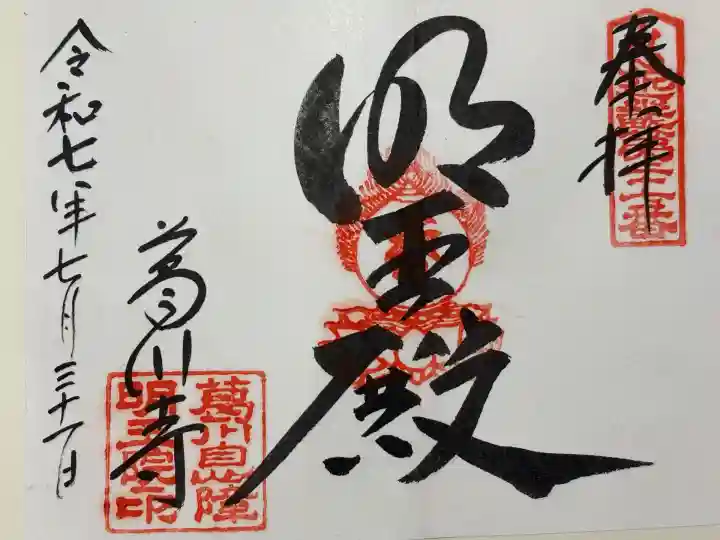 奉拝
明王殿
葛川寺
葛川息障
明王院印
令和七年七月三十一日